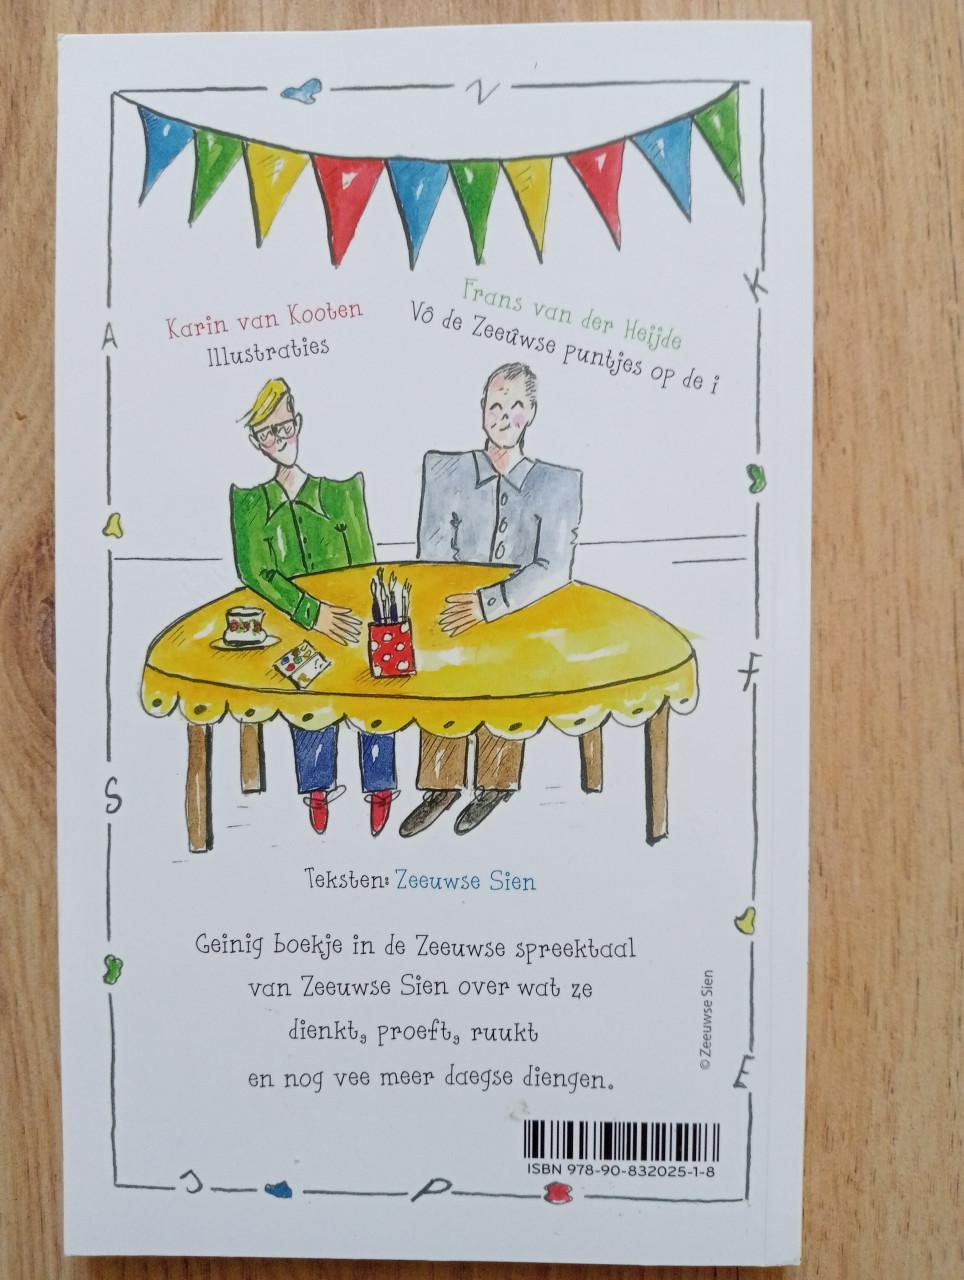 N
K
A
T
S
E
J
P
Karin van Kooten
Illustraties
Frans van der Heijde
Vô de Zeeûwse puntjes op de i
Teksten: Zeeuwse Sien
Geinig boekje in de Zeeuwse spreektaal
van Zeeuwse Sien over wat ze
dienkt, proeft, ruukt
en nog vee meer daegse diengen.
© Zeeuwse Sien
ISBN 978-90-832025-1-8